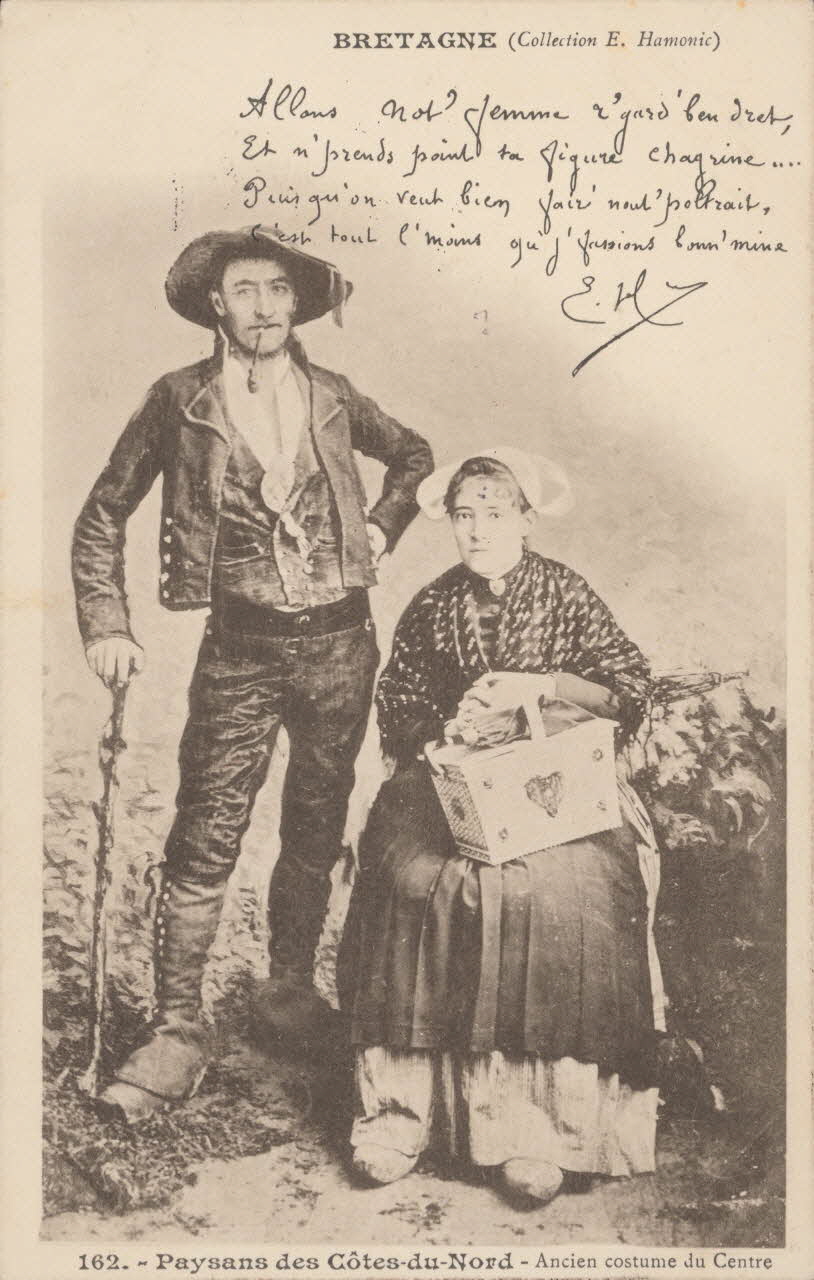 BRETAGNE (Collection E. Hamonic)
Allons not' femme r'gard' ben dret,
Et n'prends point ta figure chagrine....
Puisqu'on veut bien fair' nout' poltrait,
C'est tout l'moins qu'j'fassions bonn' mine
E. H
162. - Paysans des Côtes-du-Nord - Ancien costume du Centre